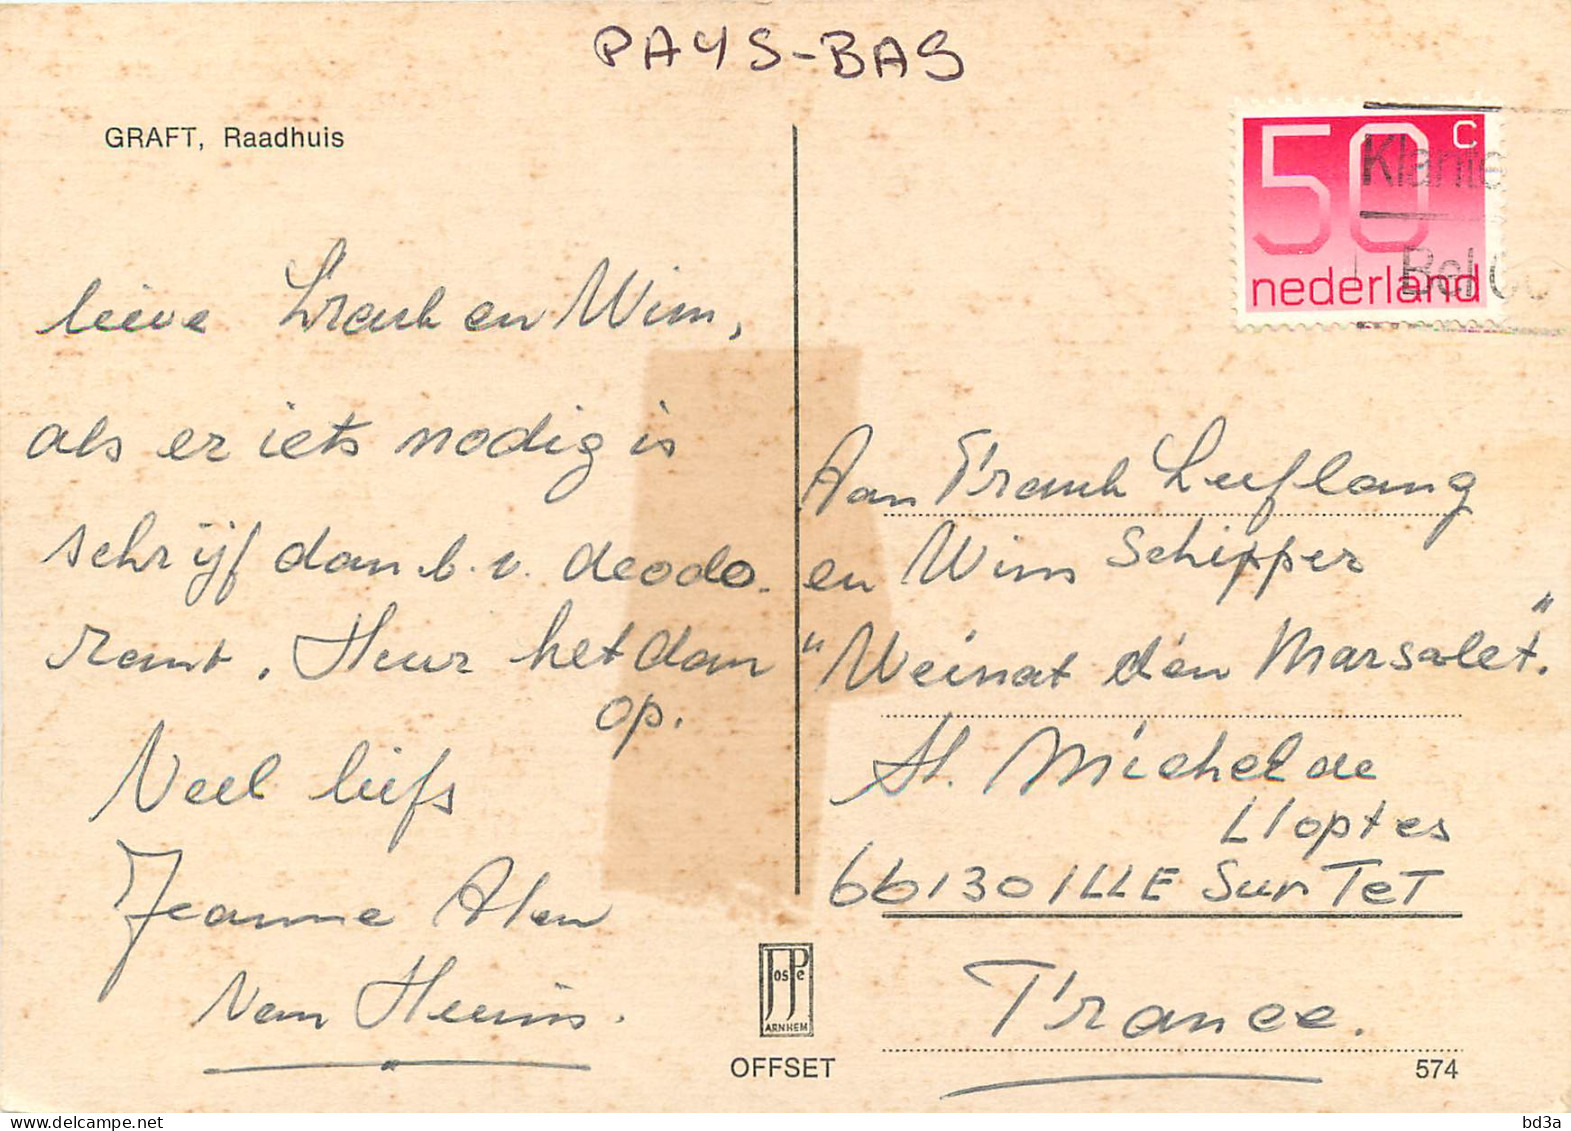 PAYS-BAS
GRAFT, Raadhuis
50 c
nederland
Klante
Bel 00
lieve Frank en Wim,
als er iets nodig is
schrijf dan b.v. deodo-
rant. Stuur het dan
op.
Veel liefs
Jeanne Alen
Van
Aan Frank Luflang
en Wim Schipper
"Weinat den Marsalet."
St. Michel de
Lloptes
66130 ILLE Sur TeT
France.
JosPe
ARNHEM
OFFSET
574
bd3a